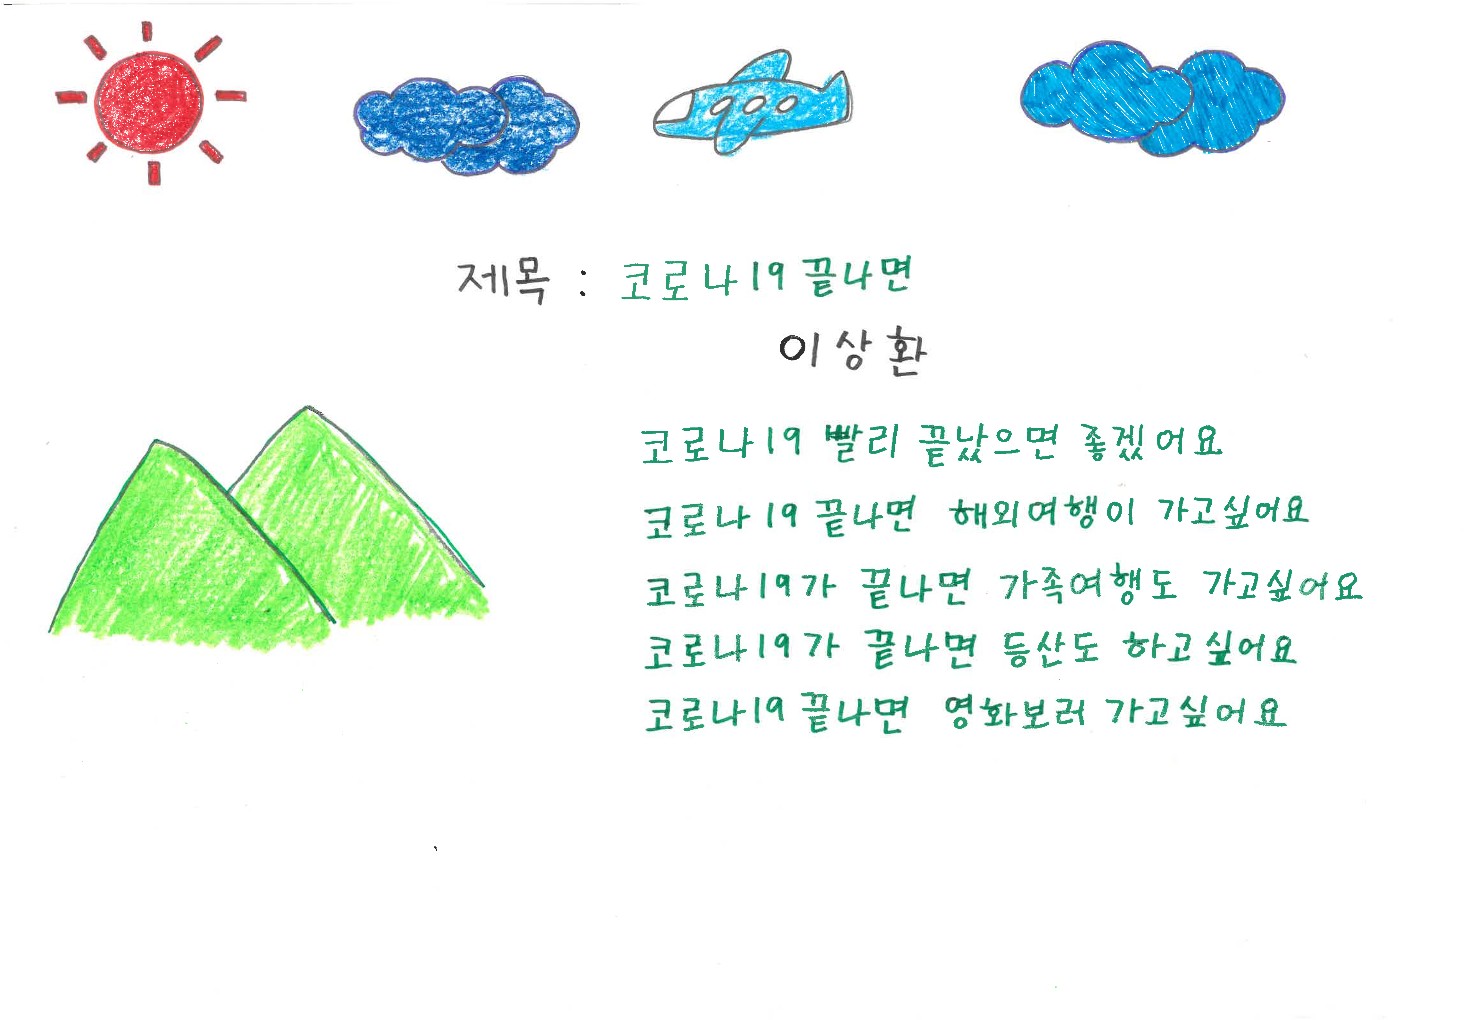 제목 : 코로나19 끝나면
이상환
코로나19 빨리 끝났으면 좋겠어요
코로나19 끝나면 해외여행이 가고싶어요
코로나19가 끝나면 가족여행도 가고싶어요
코로나19가 끝나면 등산도 하고싶어요
코로나19 끝나면 영화보러 가고싶어요